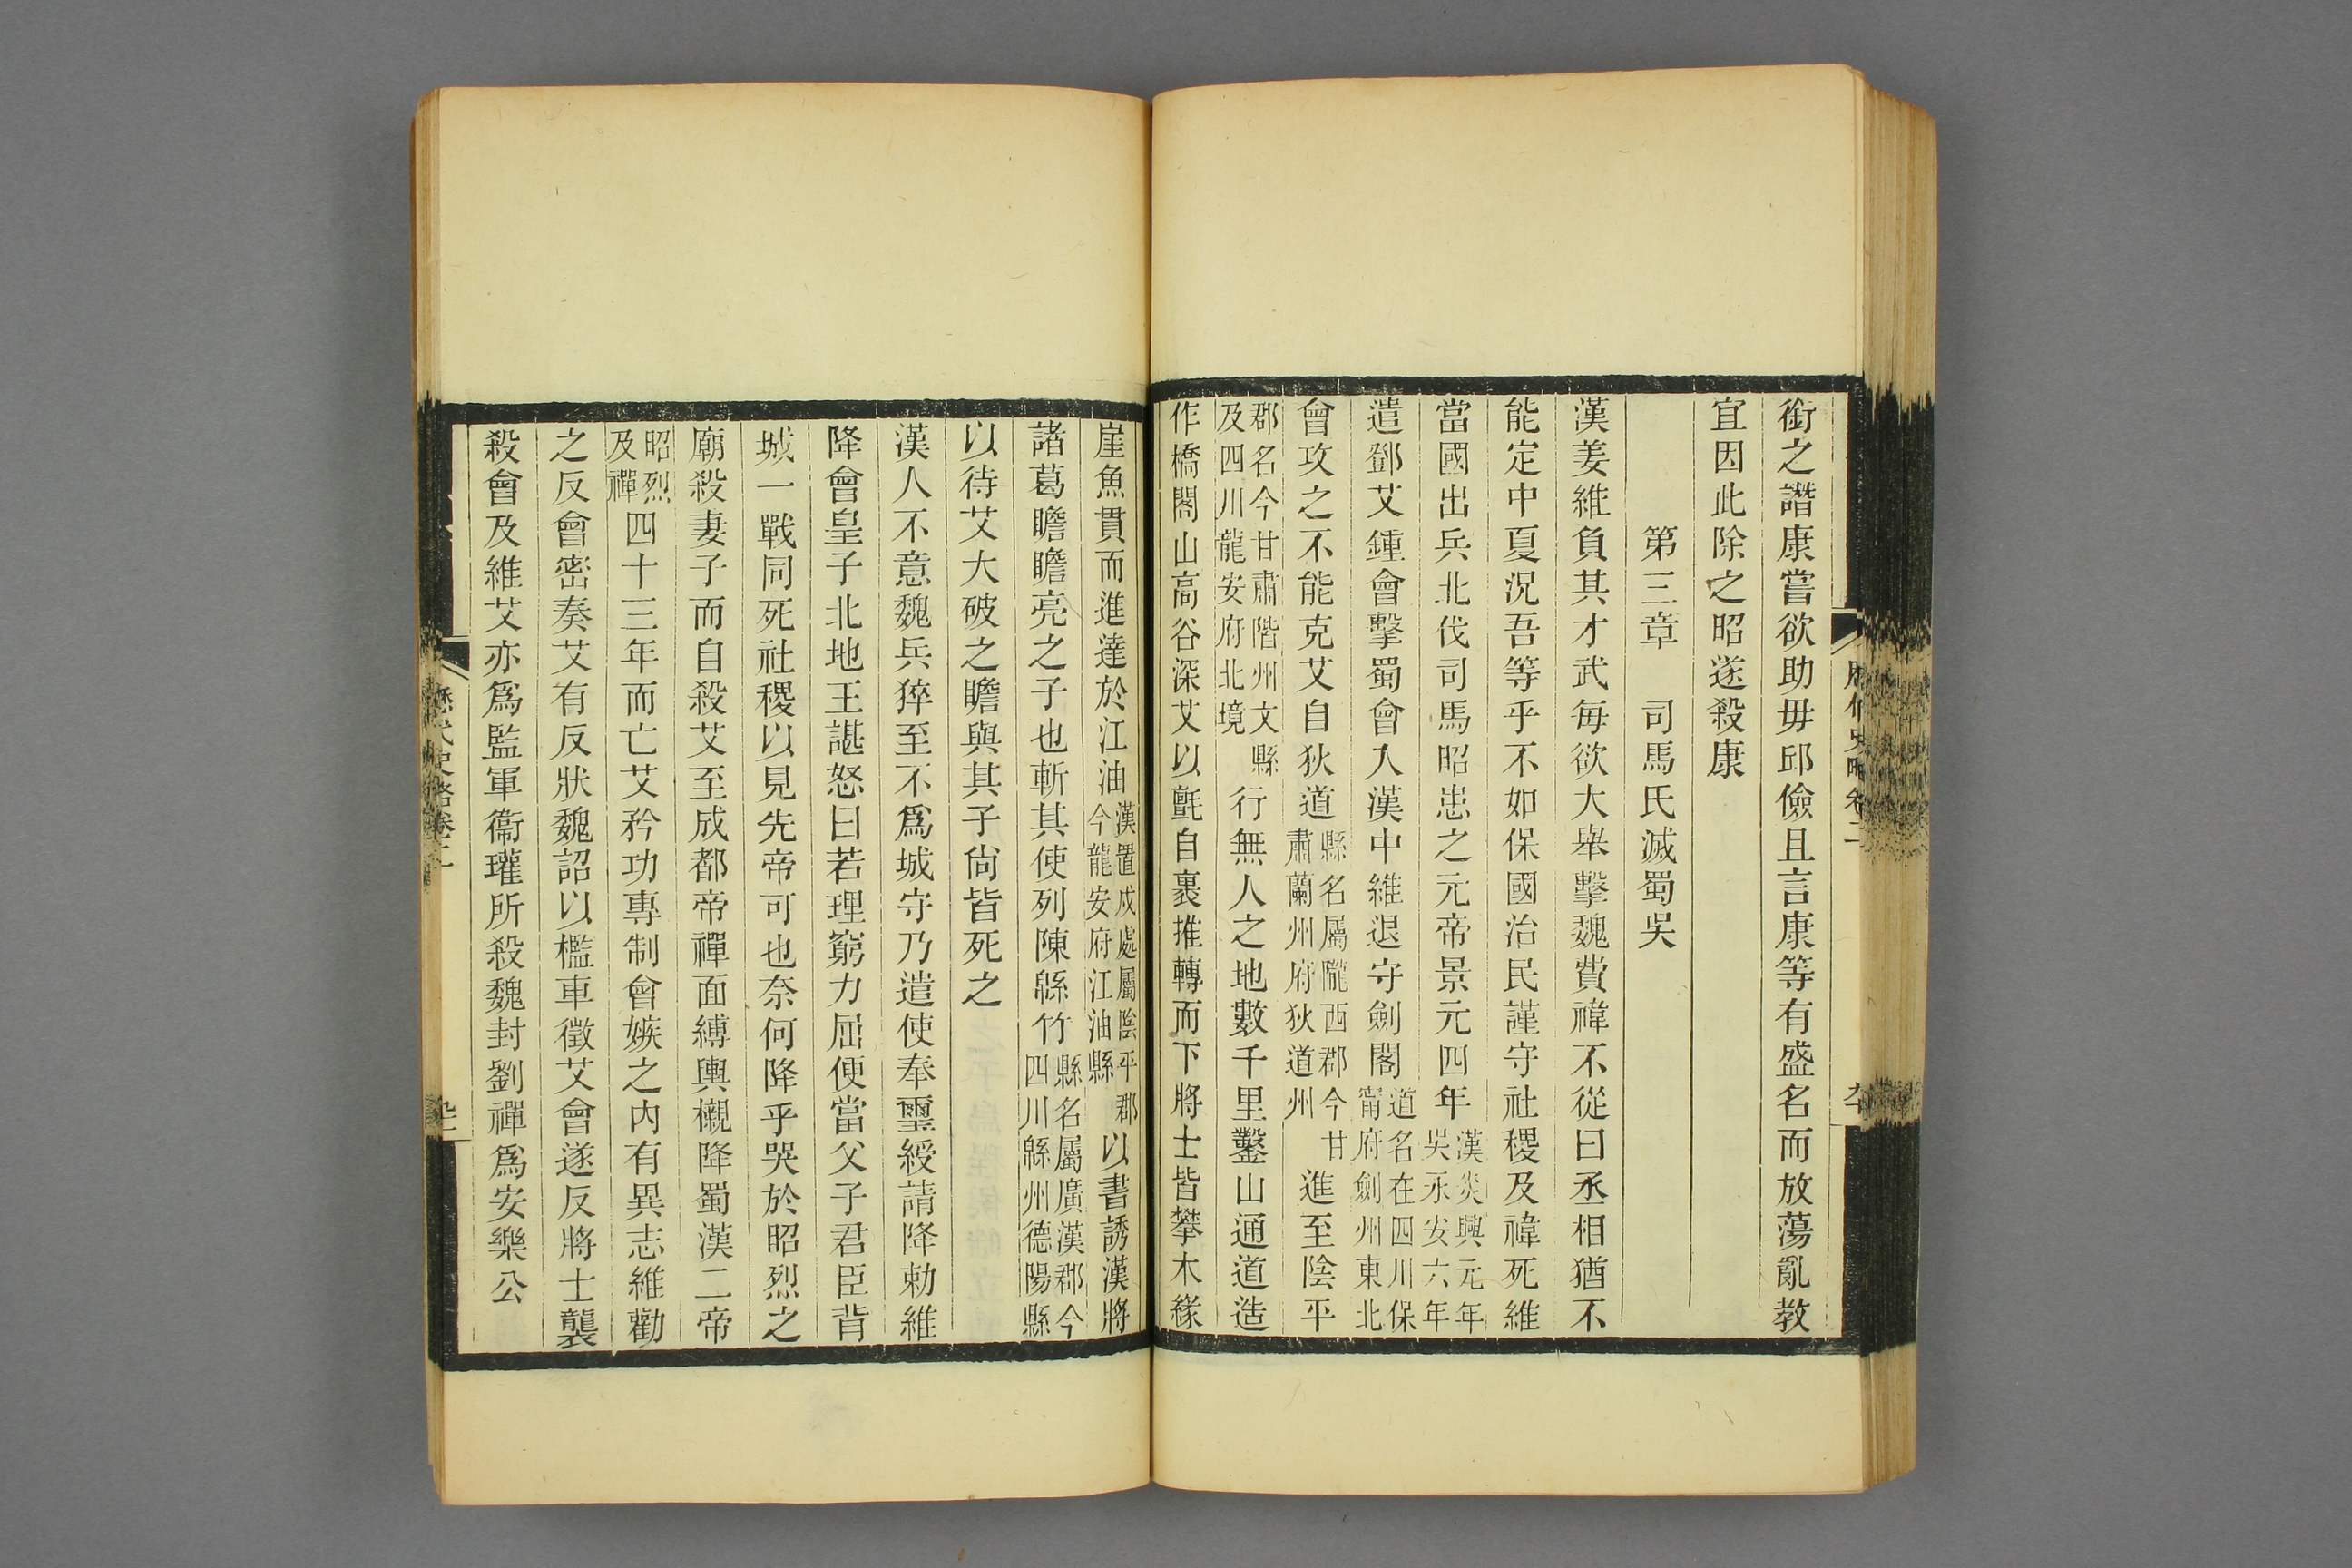 銜之譖康嘗欲助毋邱儉且言康等有盛名而放蕩亂教
宜因此除之昭遂殺康
第三章　司馬氏滅蜀吳
漢姜維負其才武每欲大舉擊魏費禕不從曰丞相猶不
能定中夏況吾等乎不如保國治民謹守社稷及禕死維
當國出兵北伐司馬昭患之元帝景元四年漢炎興元年吳永安六年
遣鄧艾鍾會擊蜀會入漢中維退守劍閣道名在四川保甯府劍州東北
會攻之不能克艾自狄道縣名屬隴西郡今甘肅蘭州府狄道州進至陰平
郡名今甘肅階州文縣及四川龍安府北境行無人之地數千里鑿山通道造
作橋閣山高谷深艾以氈自裹推轉而下將士皆攀木緣
崖魚貫而進達於江油漢置戍處屬陰平郡今龍安府江油縣以書誘漢將
諸葛瞻瞻亮之子也斬其使列陳緜竹縣名屬廣漢郡今四川緜州德陽縣
以待艾大破之瞻與其子尙皆死之
漢人不意魏兵猝至不爲城守乃遣使奉璽綬請降勅維
降會皇子北地王諶怒曰若理窮力屈便當父子君臣背
城一戰同死社稷以見先帝可也奈何降乎哭於昭烈之
廟殺妻子而自殺艾至成都帝禪面縛輿櫬降蜀漢二帝
昭烈及禪四十三年而亡艾矜功專制會嫉之內有異志維勸
之反會密奏艾有反狀魏詔以檻車徵艾會遂反將士襲
殺會及維艾亦爲監軍衞瓘所殺魏封劉禪爲安樂公
歷代史略卷二